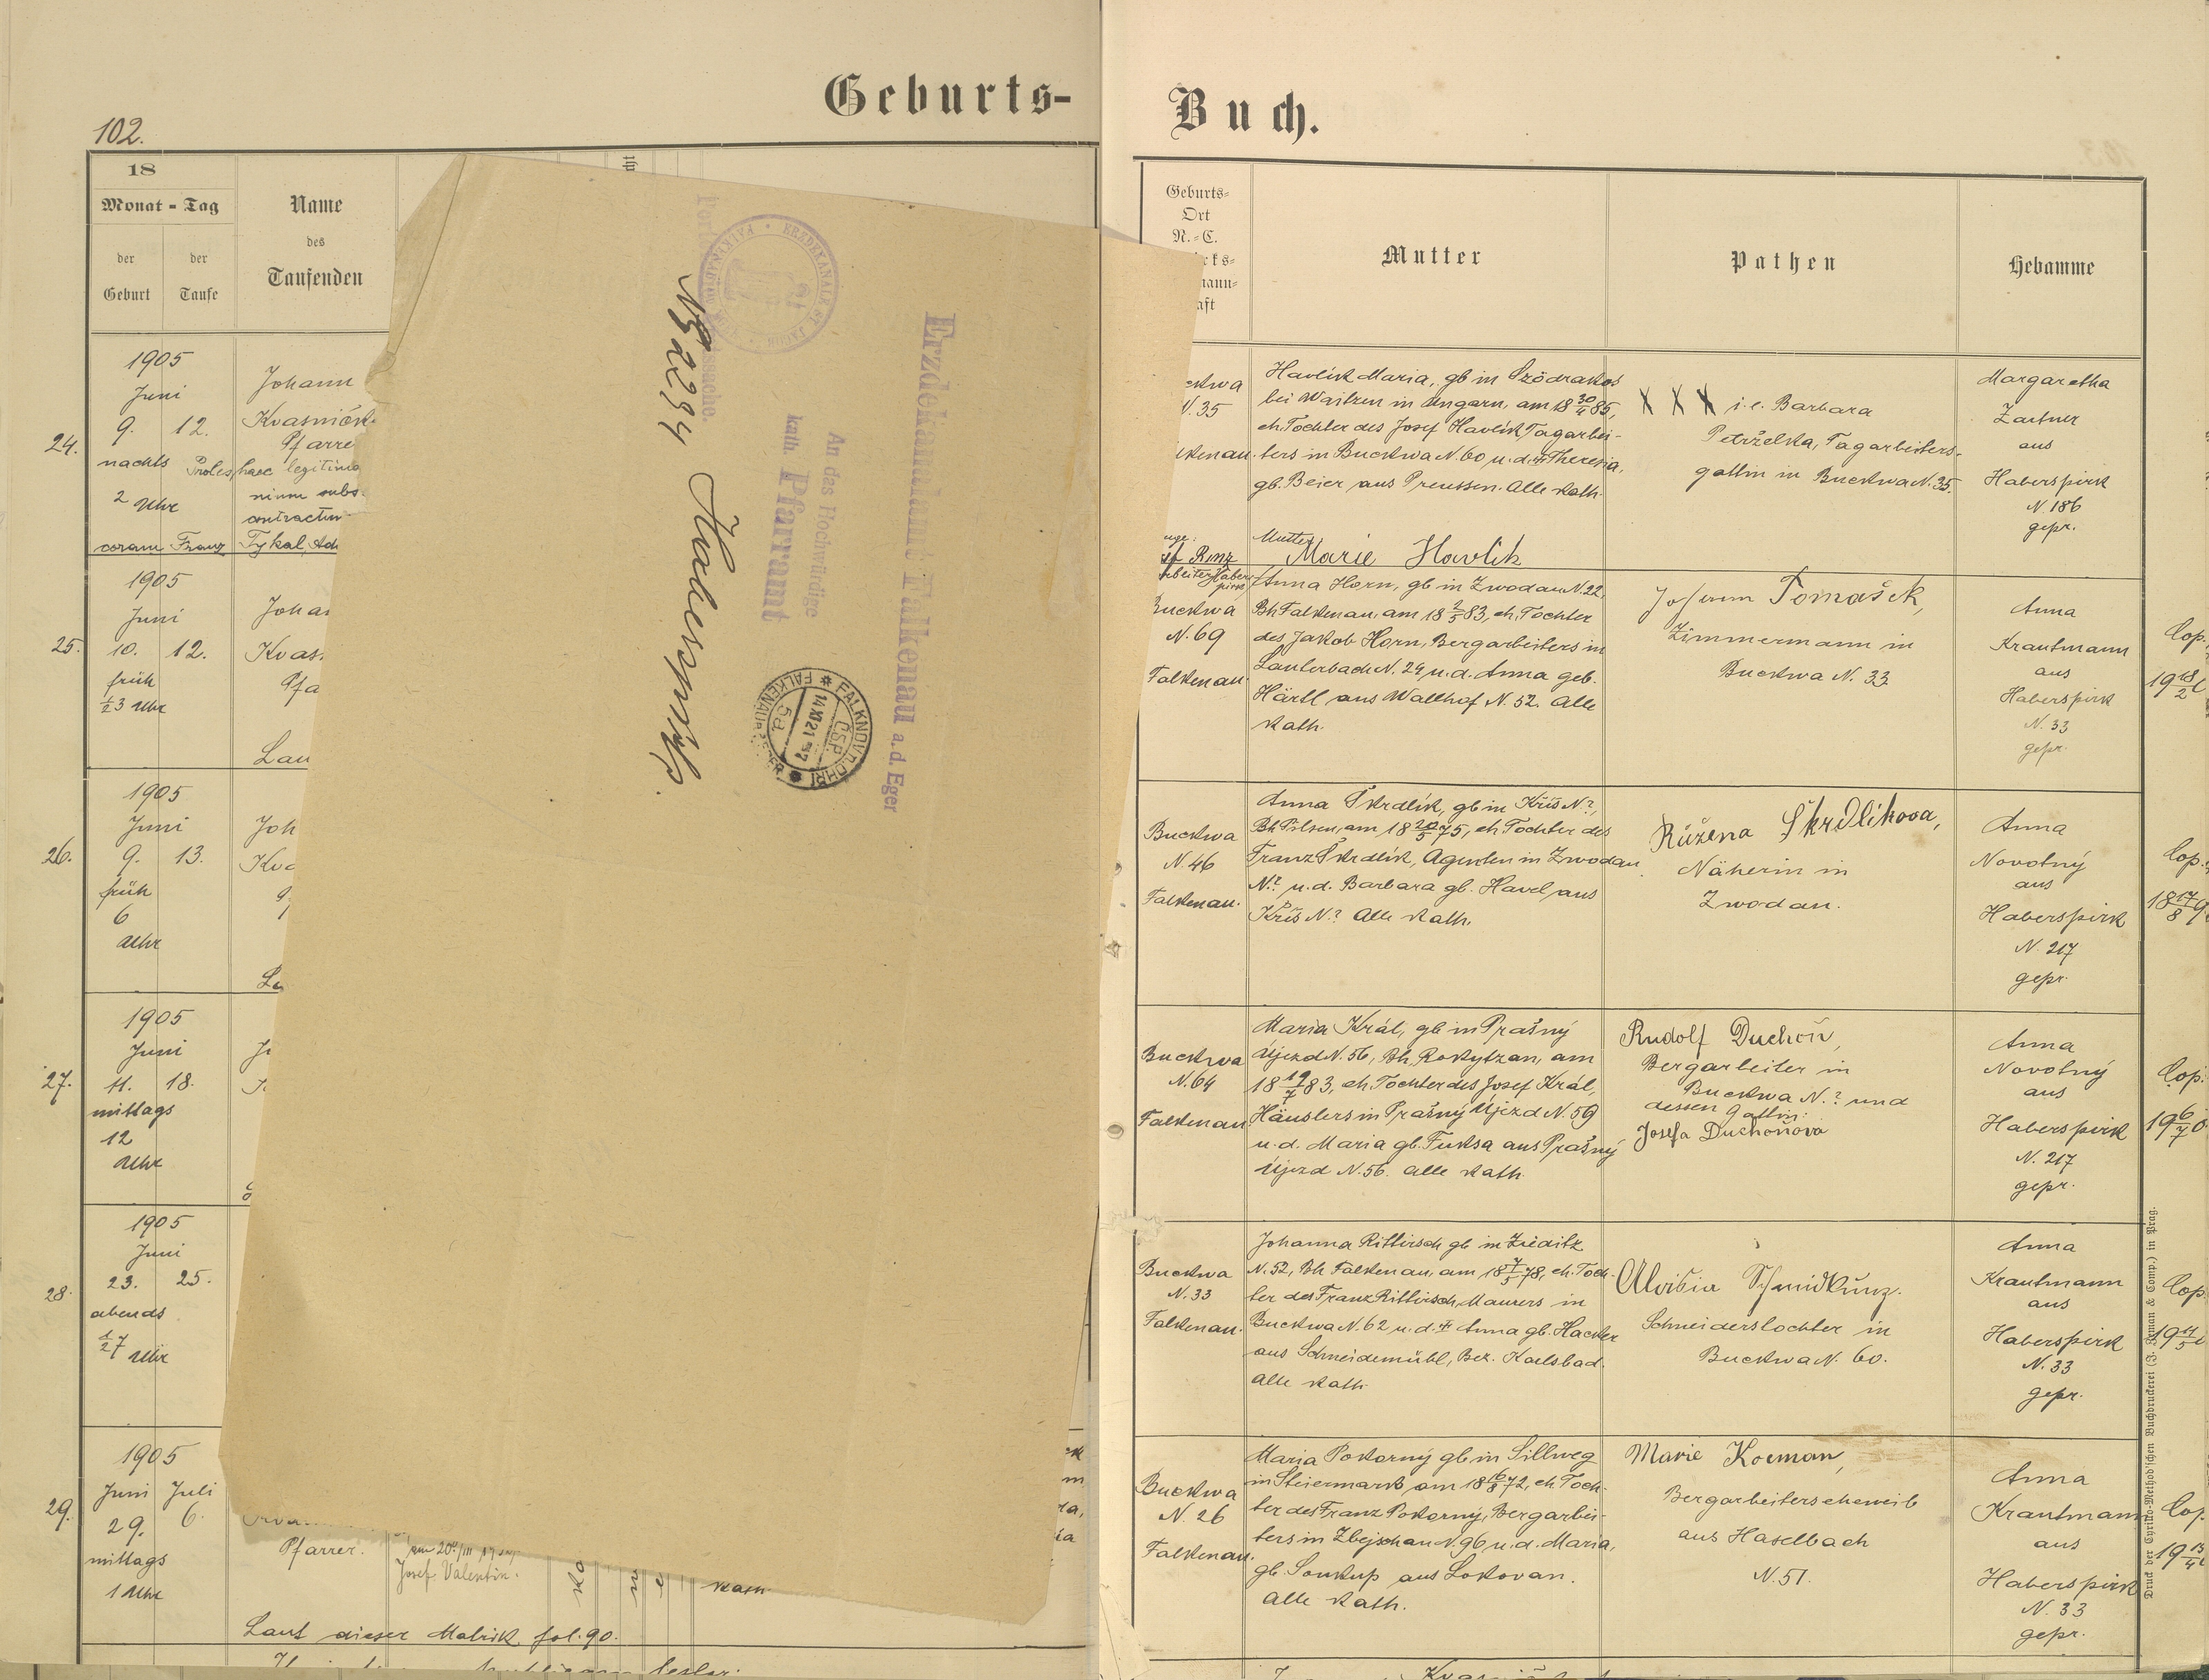 Geburts-
Buch.
102.
18
Monat - Tag
der
Geburt
der
Taufe
Name
des
Taufenden
24.
1905
Juni
9. 12.
nachts
2 Uhr
Johann
Pfarre
Proles haec legitima
coram Franz Tykal
25.
1905
Juni
10. 12.
früh
½3 Uhr
26.
1905
Juni
9. 13.
früh
6
Uhr
27.
1905
Juni
11. 18.
mittags
12
Uhr
28.
1905
Juni
23. 25.
abends
½7 Uhr
29.
1905
Juni Juli
29. 6.
mittags
1 Uhr
Pfarrer.
Josef Valentin.
kath.
Laut dieser Matrik fol. 90.
Erzdekanalamt Falkenau a.d. Eger
An das Hochwürdige
kath. Pfarramt
Haberspirk.
FALKNOV N. OHŘÍ
ČSP
14 XI 21
5a
Geburts-
Ort
N.-C.
Mutter
Pathen
Hebamme
N. 35
Havlík Maria, gb in
bei Waitzen in Ungarn, am 18 30/4 85,
eh. Tochter des Josef Havlík Tagarbei-
ters in Buckwa N. 60 u. d. Theresia,
gb. Beier aus Preussen. Alle kath.
Mutter
Marie Havlik
X X X i. e. Barbara
Petrželka, Tagarbeiters-
gattin in Buckwa N. 35.
Margaretha
Zartner
aus
Haberspirk
N. 186
gepr.
Buckwa
N. 69
Falkenau
Anna Horn, gb in Zwodau N. 22,
Bh Falkenau, am 18 2/5 83, eh. Tochter
des Jakob Horn, Bergarbeiters in
Lauterbach N. 24 u. d. Anna geb.
Härtl aus Wallhof N. 52. Alle
kath.
Tomašek,
Zimmermann in
Buckwa N. 33
Anna
Krautmann
aus
Haberspirk
N. 33
gepr.
Cop.
Buckwa
N. 46
Falkenau.
Anna Škrdlík, gb in Kříš N?,
Bh Pilsen, am 18 20/5 75, eh. Tochter des
Franz Škrdlík, Agenten in Zwodau
N? u. d. Barbara gb. Havel aus
Kříš N? Alle kath.
Růžena Škrdlikova,
Näherin in
Zwodau.
Anna
Novotný
aus
Haberspirk
N. 217
gepr.
Cop.
Buckwa
N. 64
Falkenau
Maria Král, gb in Prašný
Újezd N. 56, Bh. Rokytzan, am
18 19/7 83, eh. Tochter des Josef Král,
Häuslers in Prašný Újezd N. 59
u. d. Maria gb. Fuksa aus Prašný
Újezd N. 56. Alle kath.
Rudolf Duchoň,
Bergarbeiter in
Buckwa N.? und
dessen Gattin:
Josefa Duchoňova
Anna
Novotný
aus
Haberspirk
N. 217
gepr.
Cop.
Buckwa
N. 33
Falkenau.
Johanna Rittirsch gb in Zieditz
N. 52, Bh Falkenau, am 18 7/5 78, eh. Toch-
ter des Franz Rittirsch, Maurers in
Buckwa N. 62 u. d. Anna gb. Hacker
aus Schneidemühl, Bez. Karlsbad.
Alle kath.
Aloisia Schmidkunz.
Schneiderstochter in
Buckwa N. 60.
Anna
Krautmann
aus
Haberspirk
N. 33
gepr.
Cop.
Buckwa
N. 26
Falkenau.
Maria Pokorný gb in Sillweg
in Steiermark am 18 16/8 72, eh. Toch-
ter des Franz Pokorný, Bergarbei-
ters in Zbejschau N. 96 u. d. Maria,
gb. Soukup aus Lokovan.
Alle kath.
Marie Kocman,
Bergarbeiterseheweib
aus Haselbach
N. 51.
Anna
Krautmann
aus
Haberspirk
N. 33
gepr.
Cop.
Druck der Cyrillo-Method'schen Buchdruckerei (J. Zeman & Comp.) in Prag.